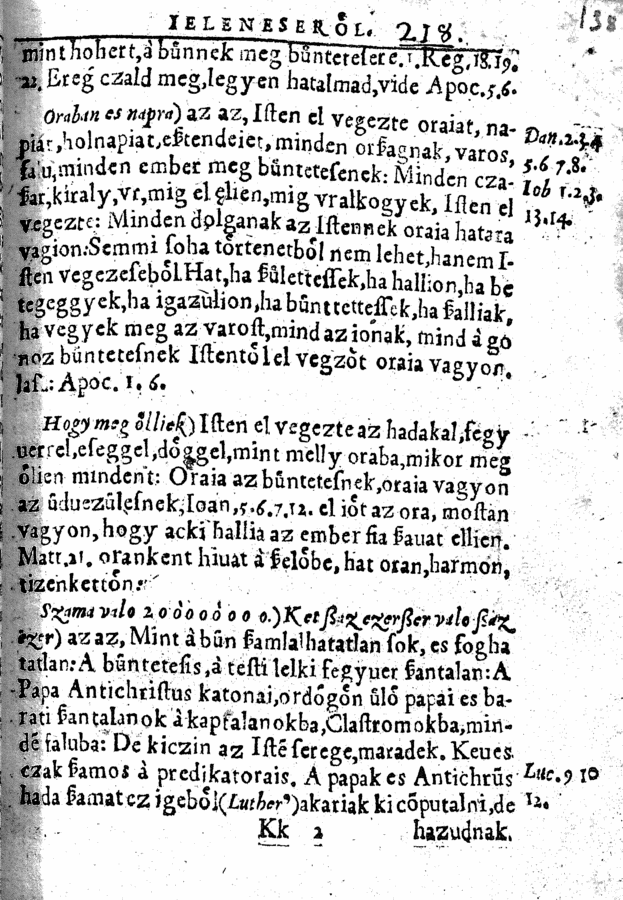 IELENESERŐL. 218.
138
mint hohert, à bűnnek meg bűntetesere. 1. Reg. 18. 19.
22. Ereg czald meg, legyen hatalmad, vide Apoc. 5. 6.
Oraban es napra) az az, Isten el vegezte oraiat, na-
piát, holnapiat, eßtendeiet, minden orßagnak, varos,
falu, minden ember meg bűntetesenek: Minden cza-
ßar, kiraly, vr, mig el ęlien, mig vralkogyek, Isten el
vegezte: Minden dolganak az Istennek oraia hatara
vagion: Semmi soha tőrtenetből nem lehet, hanem I-
sten vegezeseből. Hat, ha ßűlettessek, ha hallion, ha be
tegeggyek, ha igazùlion, ha bűnttettessek, ha ßalliak,
ha vegyek meg az varost, mind az iónak, mind à go
noz bűntetesnek Istentőlel vegzòt oraia vagyon.
las.: Apoc. 1. 6.
Hogy meg őlliek) Isten el vegezte az hadakal, fegy
uerrel, eseggel, dőggel, mint melly oraba, mikor meg
őlien mindent: Oraia az bűntetesnek, oraia vagyon
az űduezűlęsnek; Ioan, 5. 6. 7. 12. el iőt az ora, mostan
vagyon, hogy acki hallia az ember fia ßauat ellien.
Matt. 21. orankent hiuat à ßelőbe, hat oran, harmon,
tizenkettőn:
Szama valo 200000000.) Ket ßaz ezerßer valo ßáz
ezer) az az, Mint à bűn ßamlalhatatlan sok, es fogha
tatlan: A bűntetesis, à testi lelki fegyuer ßantalan: A
Papa Antichristus katonai, ordőgőn űlő papai es ba-
rati ßantalanok à kaptalanokba, Clastromokba, min-
dē faluba: De kiczin az Istē serege, maradek. Keues
czak ßamos à predikatorais. A papak es Antichrűs
hada ßamat ez igeből (Luther') akariak ki cõputalni, de
Dan. 2. 3. 4
5. 6 7. 8.
Iob 1. 2. 3.
13. 14.
Luc. 9 10
12.
Kk 2 hazudnak.